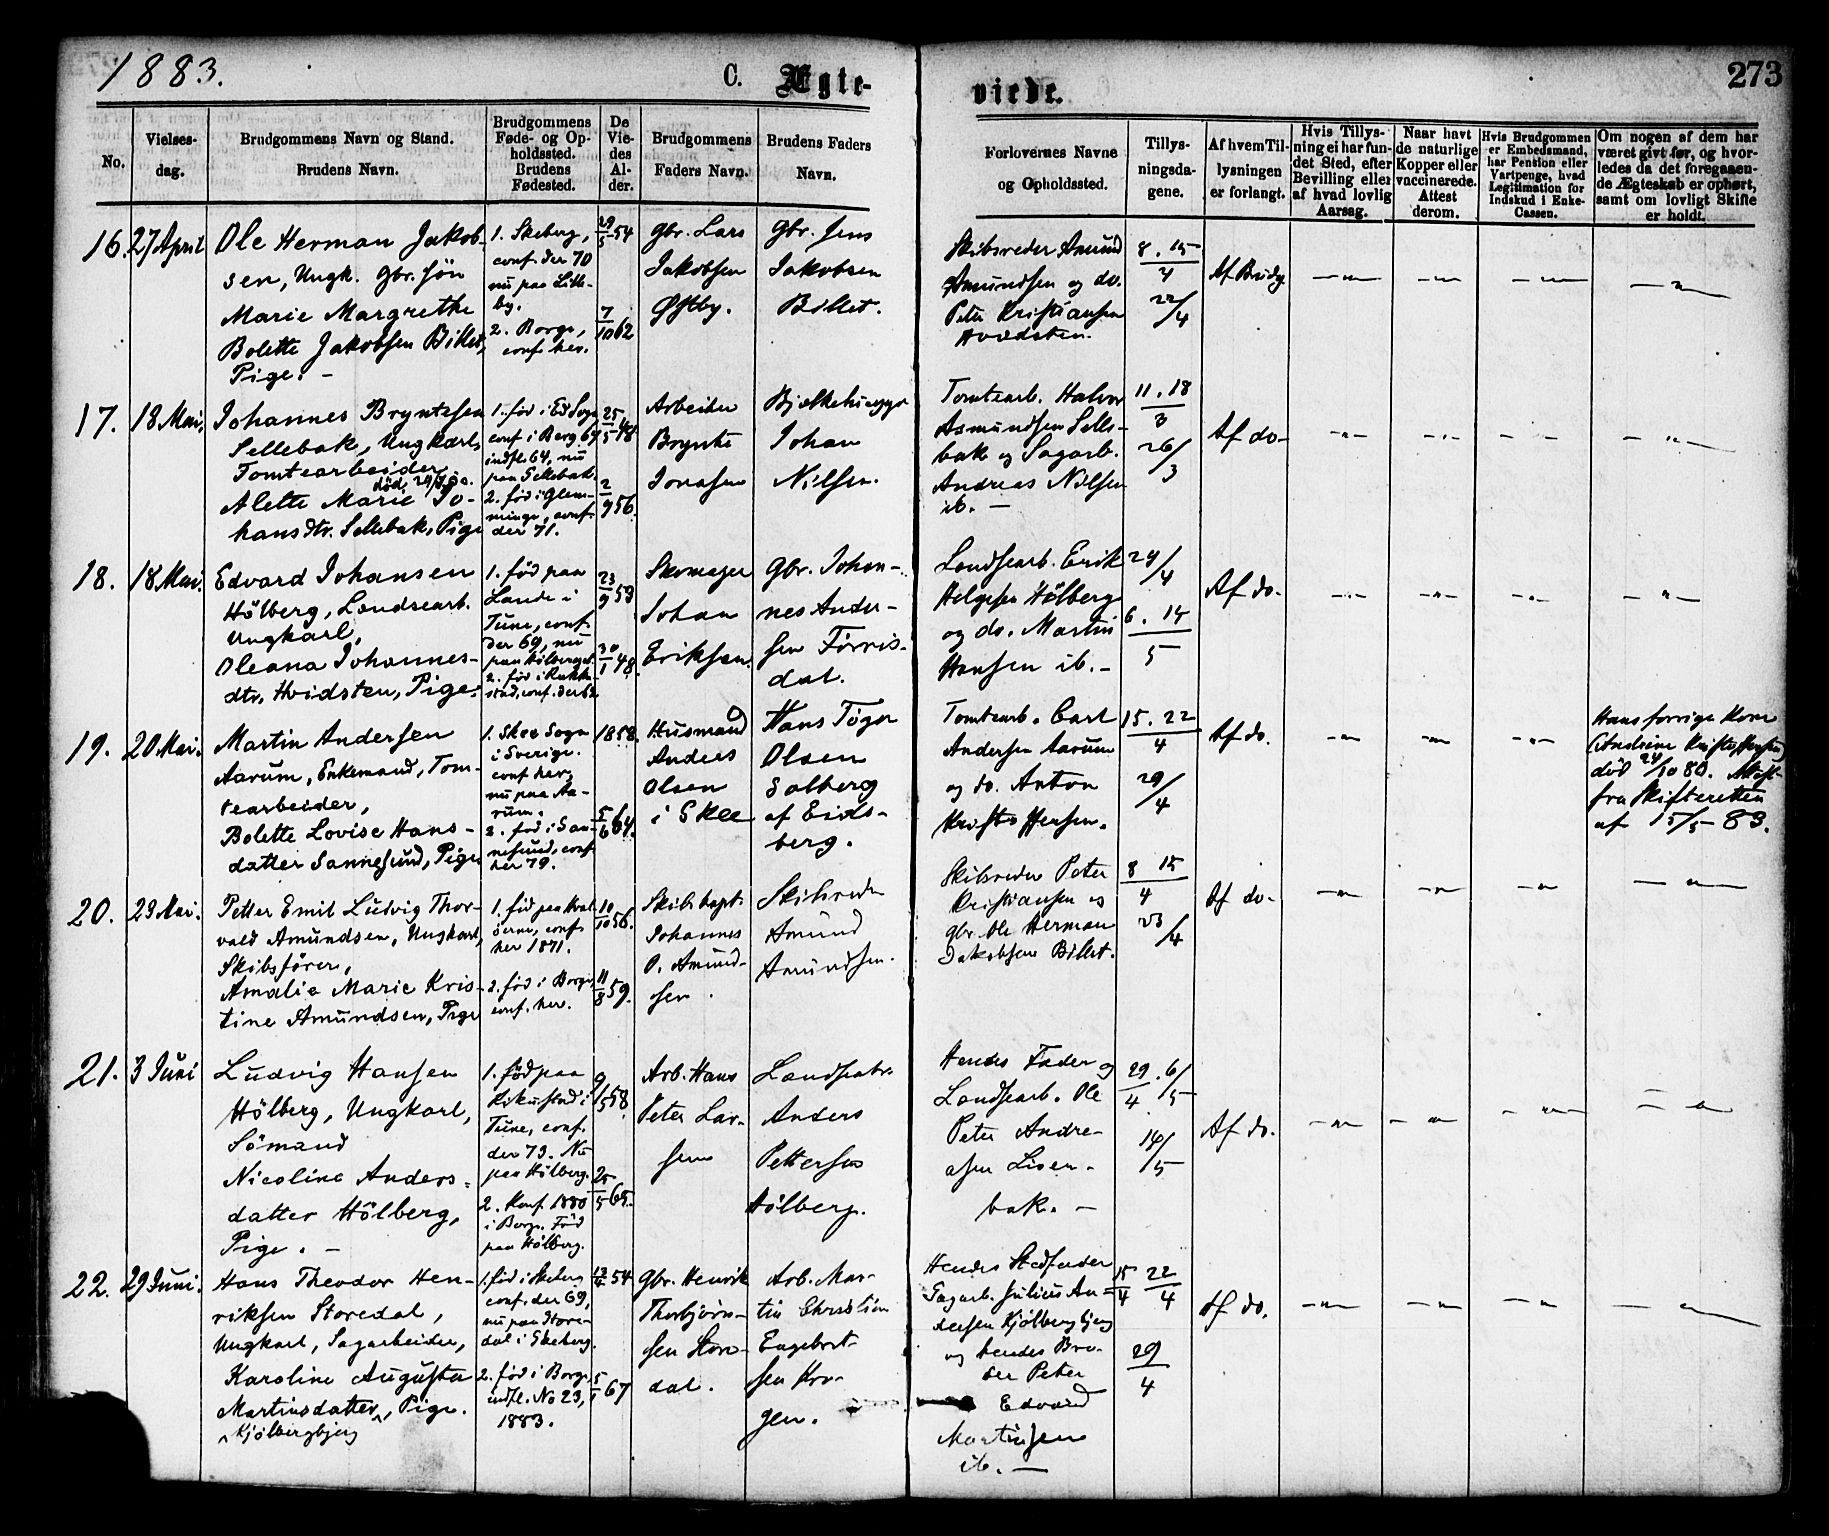 1883.
C. Ægte-
viede.
273
No.
Vielses-
dag.
Brudgommens Navn og Stand.
Brudens Navn.
Brudgommens
Føde- og Op-
holdssted.
Brudens
Fødested.
De
Vie-
des
Al-
der.
Brudgommens
Faders Navn.
Brudens Faders
Navn.
Forlovernes Navne
og Opholdssted.
Tillys-
ningsda-
gene.
Af hvem Til-
lysningen
er forlangt.
Hvis Tillys-
ning ei har fun-
det Sted, efter
Bevilling eller
af hvad lovlig
Aarsag.
Naar havt
de naturlige
Kopper eller
vaccinerede.
Attest
derom.
Hvis Brudgommen
er Embedsmand,
har Pension eller
Vartpenge, hvad
Legitimation for
Indskud i Enke-
Cassen.
Om nogen af dem har
været givt før, og hvor-
ledes da det foregaaen-
de Ægteskab er ophørt,
samt om lovligt Skifte
er holdt.
16.
27 April
Ole Herman Jakob-
sen, Ungk. Gbr. søn
Marie Margrethe
Bolette Jakobsen Billet,
Pige. -
1. Skeberg,
conf. der 70
nu paa Lille-
by.
2. Borge,
conf. her.
29/5 54
7/10 62
Gbr. Lars
Jakobsen
Østby.
Gbr. Jens
Jakobsen
Billet.
Skibsreder Amund
Amundsen og do.
Peter Kristiansen
Hvidsten.
8. 15/4
22/4
Af Brudg.
17.
18 Mai.
Johannes Bryntesen
Sellebak, Ungkarl,
Tomtearbeider
Alette Marie Jo-
hansdtr. Sellebak, Pige
1. fød i Ed Sogn
conf. i Berg 64
indfl. 64, nu
paa Sellebak.
2. fød i Glem-
minge, conf.
der 71.
25/5 48
2/9 56.
Arbeider
Brynte
Jonasen
Bjelkehugger
Johan
Nilsen.
Tomtearb. Halvor
Asmundsen Selle-
bak og Sagarb.
Andreas Nilsen
ib. -
11. 18/3
26/3
Af do-
18.
18 Mai.
Edvard Johansen
Hölberg, Landsearb.
Ungkarl,
Oleana Johannes-
dtr. Hvidsten, Pige.
1. fød paa
Lande i
Tune, conf.
der 69, nu
paa Hølberget.
2. fød i Rakke-
stad, conf. der 62
23/9 53
30/1 48.
Skomager
Johan
Eriksen.
Gbr. Johan-
nes Ander-
sen Førris-
dal.
Landsearb. Erik
Helgesen Hölberg
og do. Martin
Hansen ib. -
24/4
6. 14/5
Af do-
19.
20 Mai.
Martin Andersen
Aarum, Enkemand, Tom-
tearbeider,
Bolette Lovise Hans-
datter Sannesund, Pige
1. Skee Sogn
i Sverige.
conf. her,
nu paa Aa-
rum.
2. fød i San-
nesund, conf.
her 79.
1858.
5/6 64.
Husmand
Anders
Olsen
i Skee
Hans Töger
Olsen
Solberg
af Eids-
berg.
Tomtearb. Carl
Andersen Aarum
og do. Anton
Kristoffersen.
15. 22/4
29/4
Af do.
Hans forrige Kone
(Andrine Kristoffersen)
død 24/10 80. Attest
fra Skifteretten
af 5/5 83.
20.
23 Mai.
Petter Emil Ludvig Thor-
vald Amundsen, Ungkarl,
Skibsfører,
Amalie Marie Kris-
tine Amundsen, Pige
1. fød paa Hval-
öerne, conf.
her 1871.
2. fød i Borge,
conf. her.
10/10 56.
11/8 59.
Skibskapt.
Johannes
O. Amund-
sen.
Skibsreder
Amund
Amundsen.
Skibsreder Peter
Kristiansen og
gbr. Ole Herman
Jakobsen Billet.
8 15/4
23/4
Af do-
21.
3 Juni
Ludvig Hansen
Hölberg, Ungkarl,
Sömand
Nicoline Anders-
datter Hölberg,
Pige. -
1. fød paa
Tune, conf.
der 73. Nu
paa Hølberg.
2. Konf. 1880
i Borge. Fød
paa Hølberg.
9/5 58.
25/5 65.
Arb. Hans
Peter Lar-
sen
Landsearb.
Anders
Pettersen
Hölberg.
Hendes Fader og
Landsearb. Ole
Peter Andre-
asen Lisen-
bak. -
29/4. 6/5
14/5
Af do.
22.
29 Juni.
Hans Theodor Hen-
riksen Storedal,
Ungkarl, Sagarbeider,
Karoline Augusta
Martinsdatter, Pige.
^ Kjölbergbjerg
1. fød i Skeberg
conf. der 69,
nu paa Store-
dal i Skeberg.
2. fød i Borge
indfl. No 23,
1883.
54
67
Gbr. Henrik
Thorbjørn-
sen Store-
dal.
Arb. Mar-
tin Christian
Engebret-
sen Kro-
gen.
Hendes Stedfader
Sagarb. Julius An-
dersen Kjølbergbjerg
og hendes Bro-
der Peter
Edvard
Martinsen
ib. -
15/4 22/4
29/4
Af do.